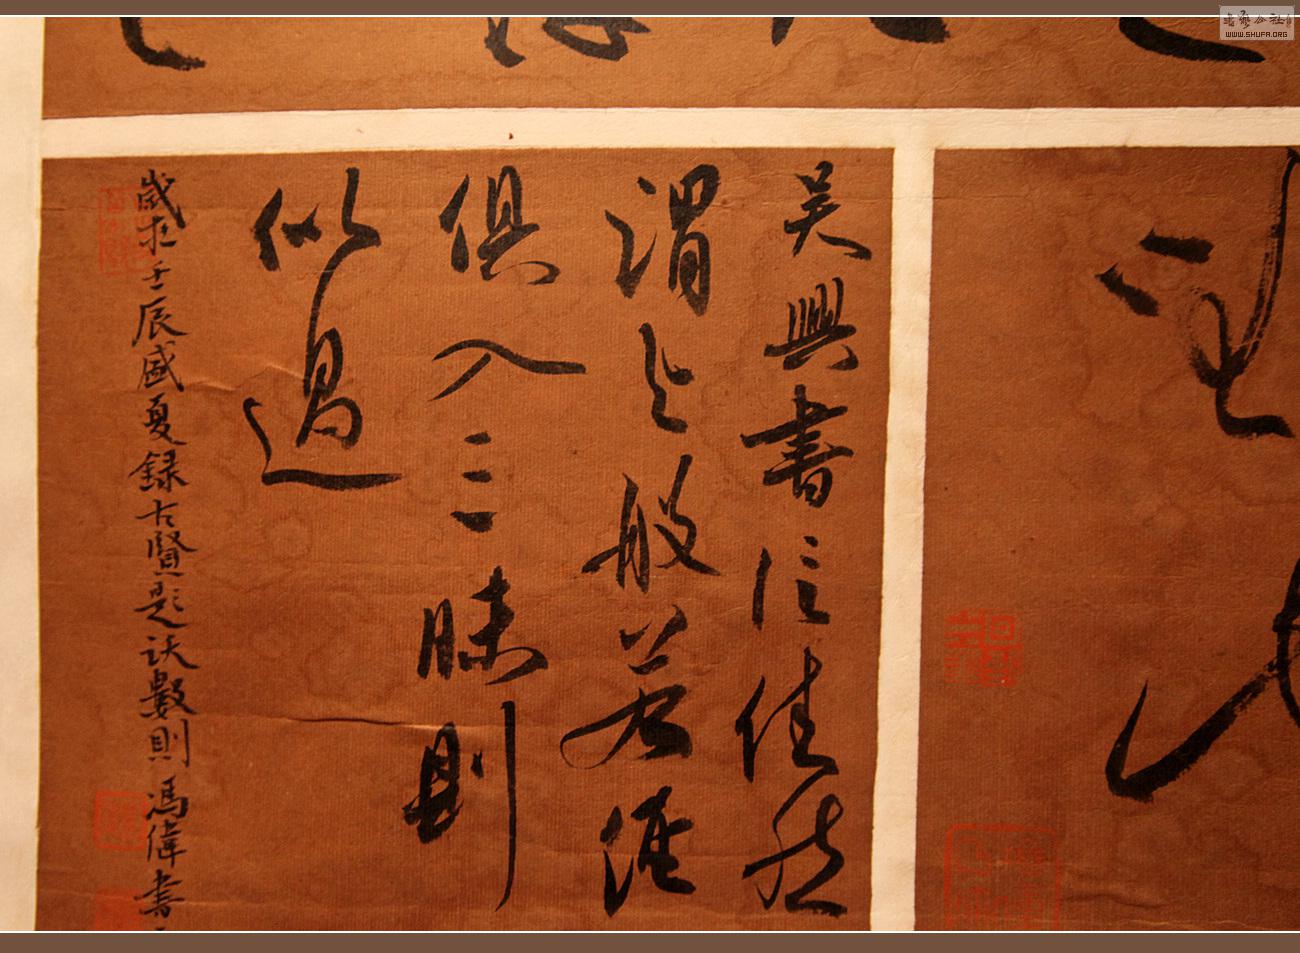 吴興書信佳然
謂之般若經
俱入三昧則
似過
歲在壬辰盛夏録古賢題跋數則馮偉書
書藝公社
WWW.SHUFA.ORG